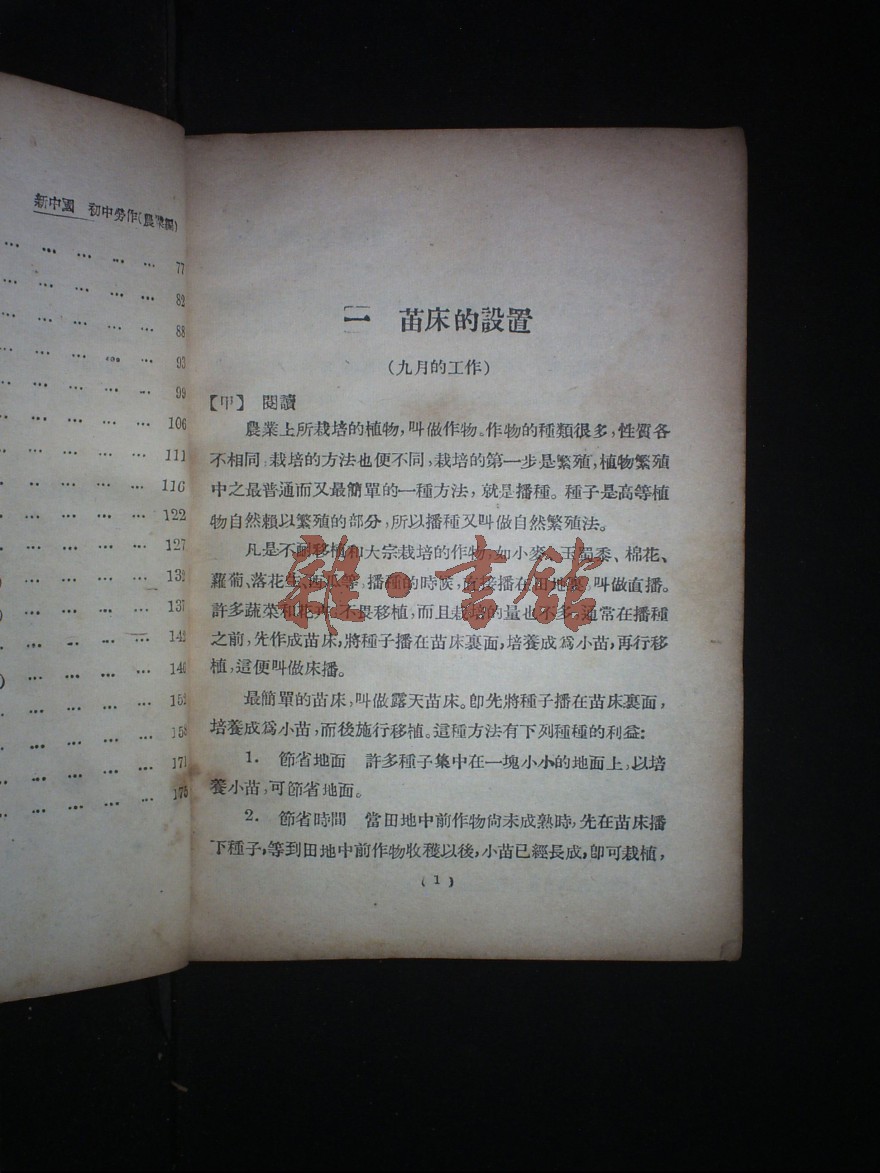 新中國 初中勞作(農業編)
… … … … … 77
… … … … … 82
… … … … … 88
… … … … … 93
… … … … … 99
… … … … … 106
… … … … … 111
… … … … … 116
… … … … … 122
… … … … … 127
… … … … … 132
… … … … … 137
… … … … … 142
… … … … …
… … … … … 152
… … … … … 158
… … … … … 171
… … … … … 175
一 苗床的設置
(九月的工作)
【甲】 閱讀
農業上所栽培的植物,叫做作物。作物的種類很多,性質各
不相同,栽培的方法也便不同,栽培的第一步是繁殖,植物繁殖
中之最普通而又最簡單的一種方法,就是播種。種子是高等植
物自然賴以繁殖的部分,所以播種又叫做自然繁殖法。
凡是不耐移植和大宗栽培的作物,如小麥、玉蜀黍、棉花、
蘿葡、落花生、西瓜等,播種的時候,直接播在田地裏,叫做直播。
許多蔬菜和花卉,不畏移植,而且栽培的量也不多,通常在播種
之前,先作成苗床,將種子播在苗床裏面,培養成爲小苗,再行移
植,這便叫做床播。
最簡單的苗床,叫做露天苗床。卽先將種子播在苗床裏面,
培養成爲小苗,而後施行移植。這種方法有下列種種的利益:
1. 節省地面 許多種子集中在一塊小小的地面上,以培
養小苗,可節省地面。
2. 節省時間 當田地中前作物尙未成熟時,先在苗床播
下種子,等到田地中前作物收穫以後,小苗已經長成,卽可栽植,
(1)
雜·書館